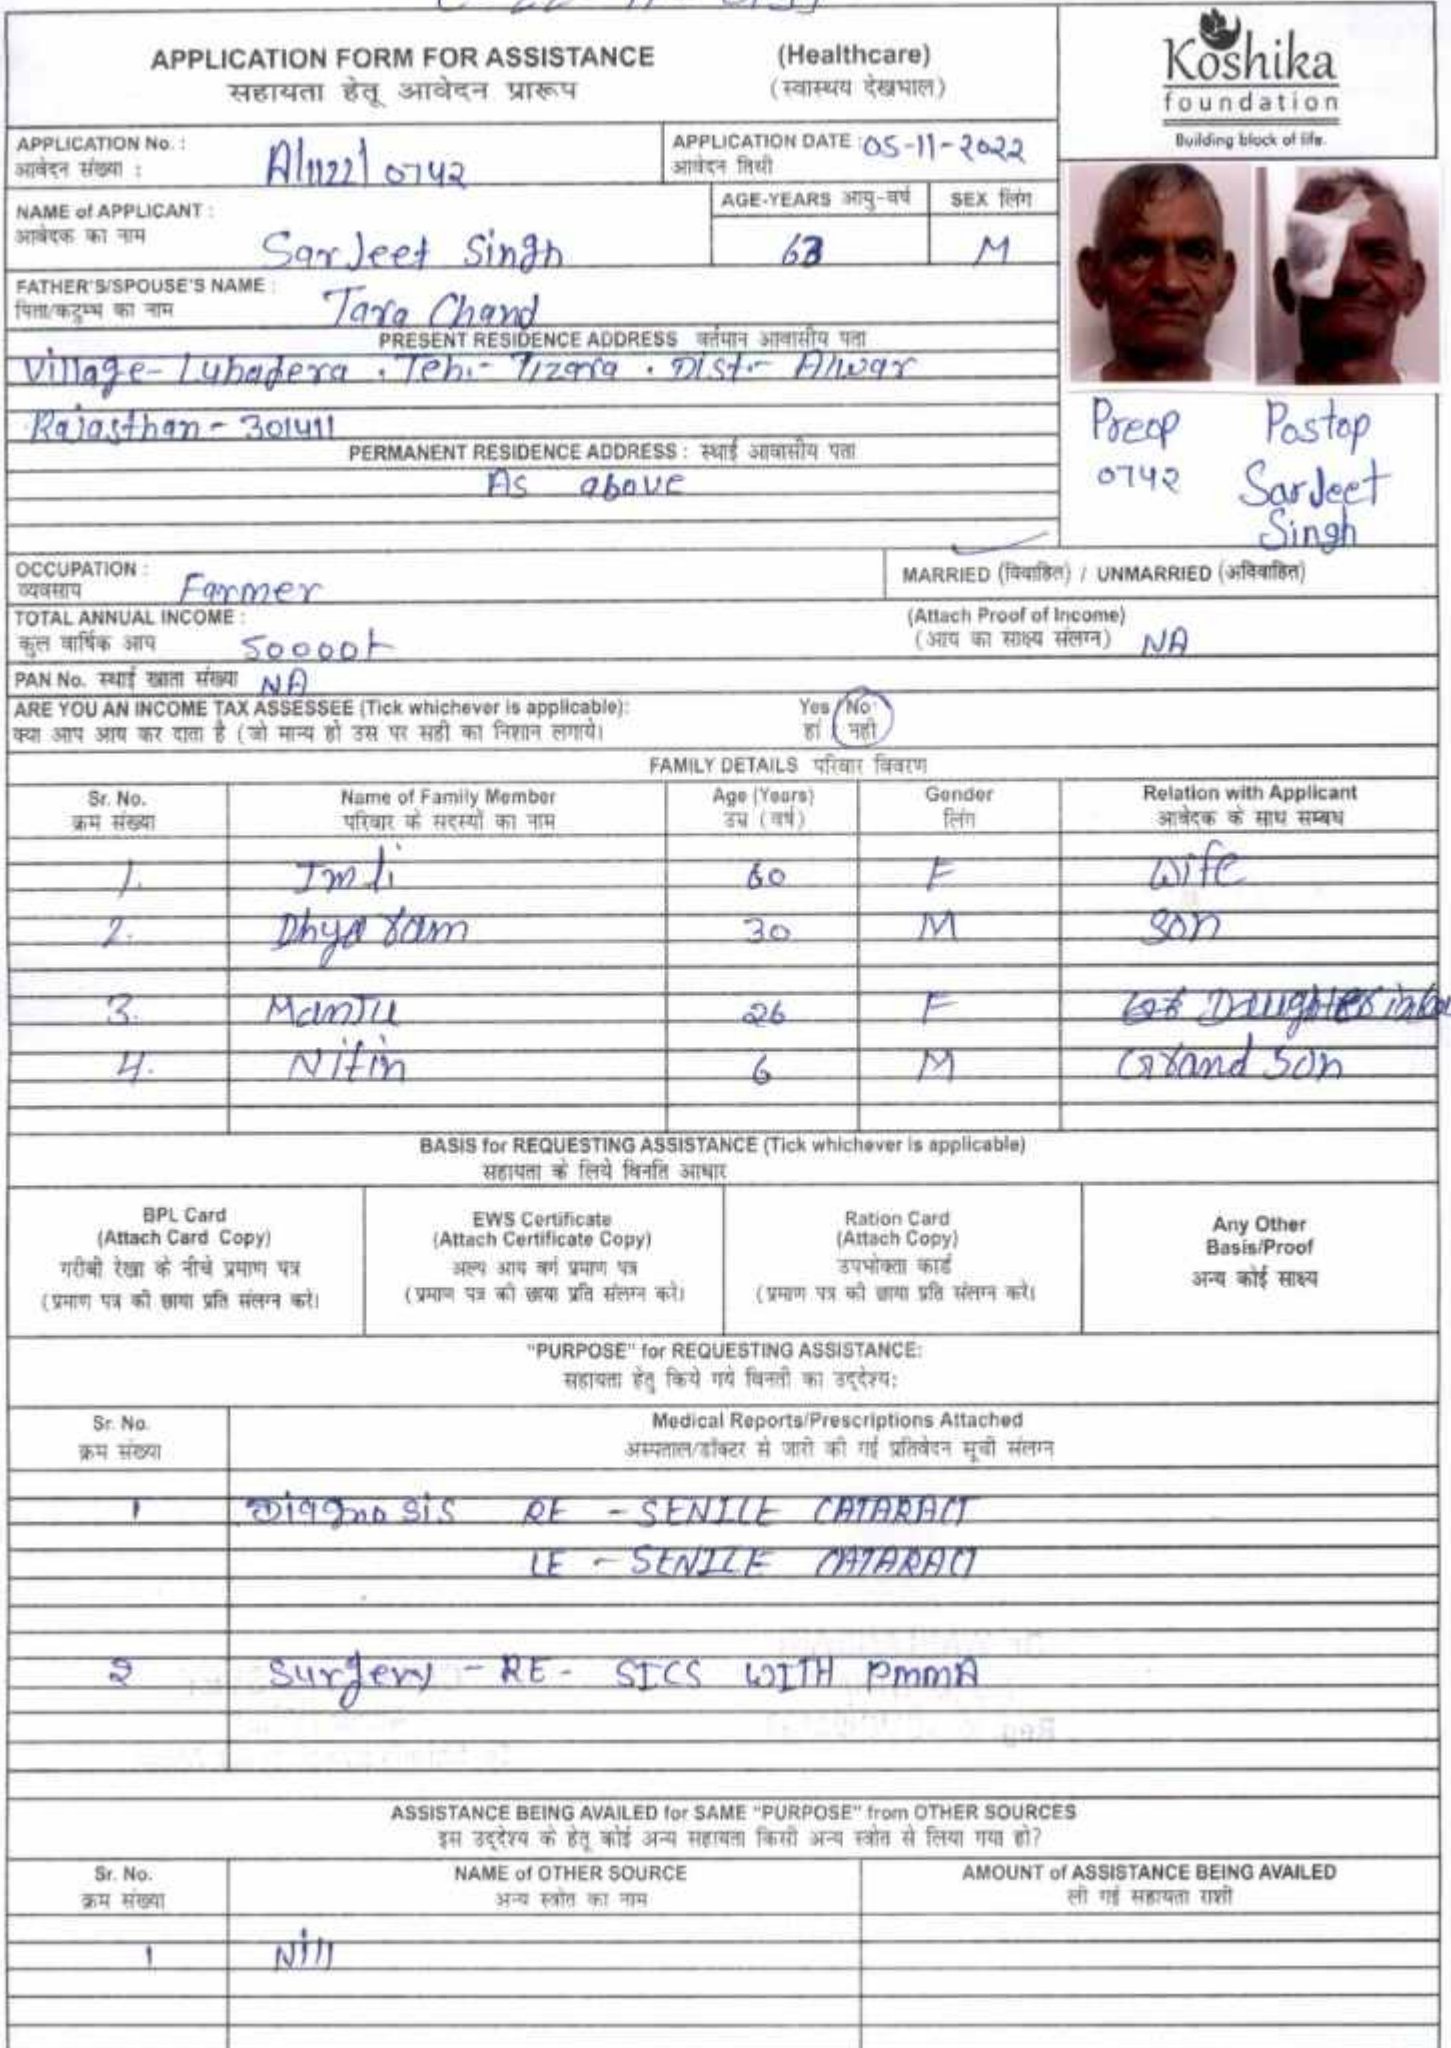 APPLICATION FORM FOR ASSISTANCE (Healthcare)
सहायता हेतू आवेदन प्रारूप (स्वास्थय देखभाल)
Koshika
foundation
Building block of life.
APPLICATION No. :
आवेदन संख्या : A/1122/0742
APPLICATION DATE : 05-11-2022
आवेदन तिथी
NAME of APPLICANT :
आवेदक का नाम Sarjeet Singh
AGE-YEARS आयु-वर्ष SEX लिंग
63 M
FATHER'S/SPOUSE'S NAME :
पिता/कटुम्भ का नाम Tara Chand
PRESENT RESIDENCE ADDRESS वर्तमान आवासीय पता
Village- Luhadera . Teh.- Tizara . Dist.- Alwar
Rajasthan - 301411
PERMANENT RESIDENCE ADDRESS : स्थाई आवासीय पता
As above
Preop Postop
0742 Sarjeet
Singh
OCCUPATION :
व्यवसाय Farmer
MARRIED (विवाहित) / UNMARRIED (अविवाहित)
TOTAL ANNUAL INCOME :
कुल वार्षिक आय 50000/-
(Attach Proof of Income)
(आय का साक्ष्य संलग्न) NA
PAN No. स्थाई खाता संख्या NA
ARE YOU AN INCOME TAX ASSESSEE (Tick whichever is applicable): Yes / No
क्या आप आय कर दाता है (जो मान्य हो उस पर सही का निशान लगाये। हां / नही
FAMILY DETAILS परिवार विवरण
Sr. No. Name of Family Member Age (Years) Gender Relation with Applicant
क्रम संख्या परिवार के सदस्यों का नाम उम्र (वर्ष) लिंग आवेदक के साथ सम्बध
1. Imli 60 F Wife
2. Dhya ram 30 M Son
3. Manju 26 F Daughter inlaw
4. Nitin 6 M Grand Son
BASIS for REQUESTING ASSISTANCE (Tick whichever is applicable)
सहायता के लिये विनति आधार
BPL Card
(Attach Card Copy)
गरीबी रेखा के नीचे प्रमाण पत्र
(प्रमाण पत्र की छाया प्रति संलग्न करे।
EWS Certificate
(Attach Certificate Copy)
अल्प आय वर्ग प्रमाण पत्र
(प्रमाण पत्र की छाया प्रति संलग्न करे।
Ration Card
(Attach Copy)
उपभोक्ता कार्ड
(प्रमाण पत्र की छाया प्रति संलग्न करे।
Any Other
Basis/Proof
अन्य कोई साक्ष्य
"PURPOSE" for REQUESTING ASSISTANCE:
सहायता हेतु किये गये विनती का उद्देश्य:
Sr. No. Medical Reports/Prescriptions Attached
क्रम संख्या अस्पताल/डॉक्टर से जारी की गई प्रतिवेदन सूची संलग्न
1 Diagnosis RE - SENILE CATARACT
LE - SENILE CATARACT
2 Surgery - RE - SICS WITH PMMA
ASSISTANCE BEING AVAILED for SAME "PURPOSE" from OTHER SOURCES
इस उद्देश्य के हेतु कोई अन्य सहायता किसी अन्य स्त्रोत से लिया गया हो?
Sr. No. NAME of OTHER SOURCE AMOUNT of ASSISTANCE BEING AVAILED
क्रम संख्या अन्य स्त्रोत का नाम ली गई सहायता राशी
1 Nill